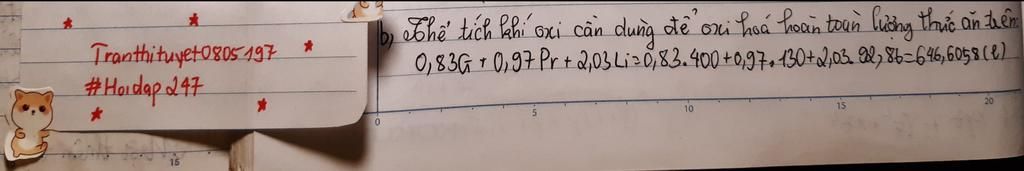 Tranthituyet0805197
#Hoidap247
b) Thể tích khí oxi cần dùng để oxi hoá hoàn toàn lượng thức ăn trên:
0,83G + 0,97Pr + 2,03Li = 0,83.400 + 0,97.130 + 2,03.92,86 = 646,6058 (l)
0 5 10 15 20
15